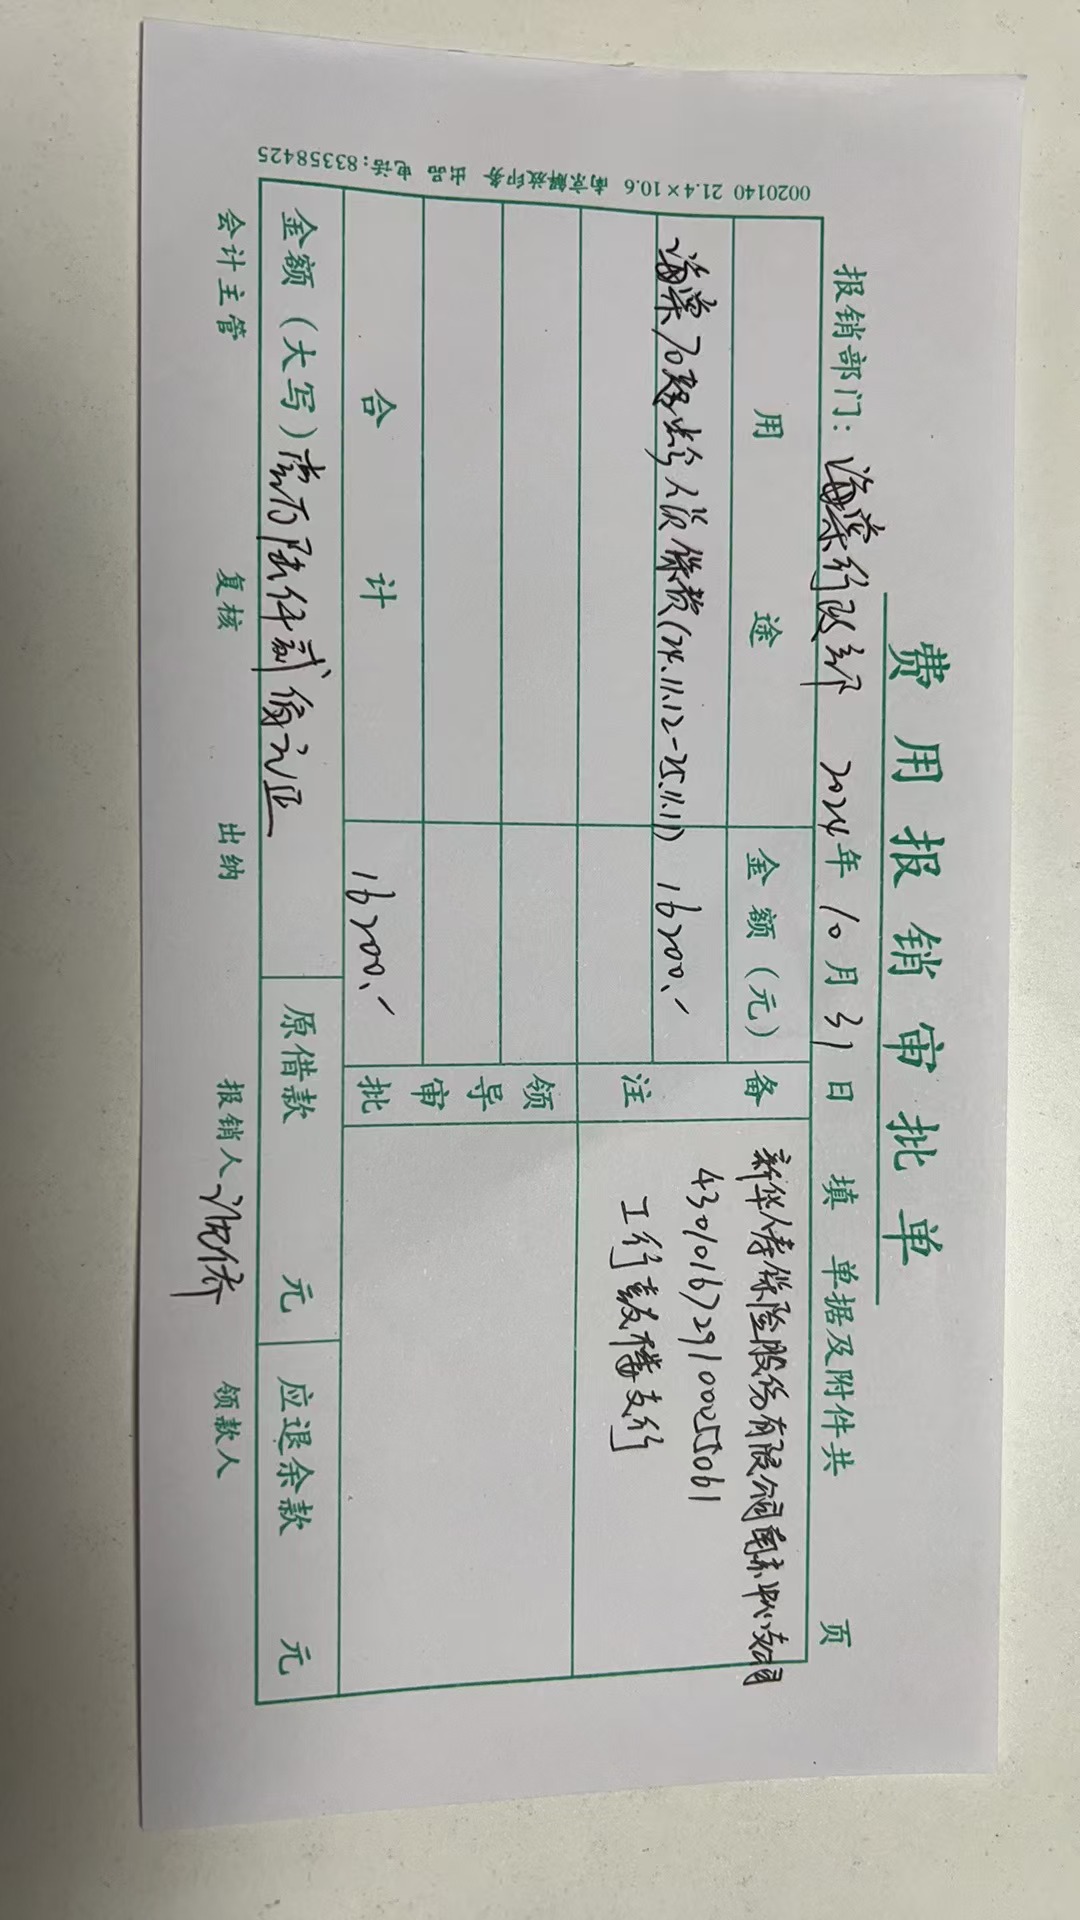 费用报销审批单
报销部门：海棠行政部 2024年10月31日填 单据及附件共 页
用途 金额（元） 备注
海棠70超龄人员保费(24.11.12-25.11.11) 16200.-
新华人寿保险股份有限公司南京中心支公司
4301016729100255061
工行鼓楼支行
领导审批
合计 16200.-
金额（大写）壹万陆仟贰佰元正 原借款 元 应退余款 元
会计主管 复核 出纳 报销人 领款人
0020140 21.4×10.6 南京解放印务 出品 电话:83358425